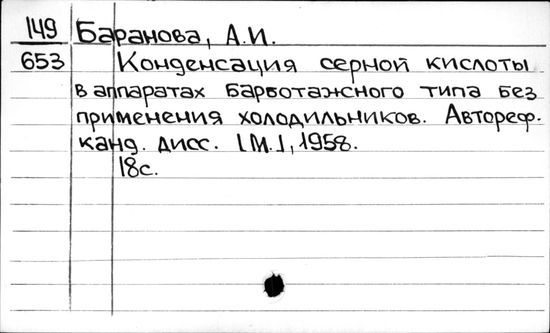 149 Баранова, А.И.
653 Конденсация серной кислоты
в аппаратах барботажного типа без
применения холодильников. Автореф.
канд. дисс. [М.], 1958.
18с.